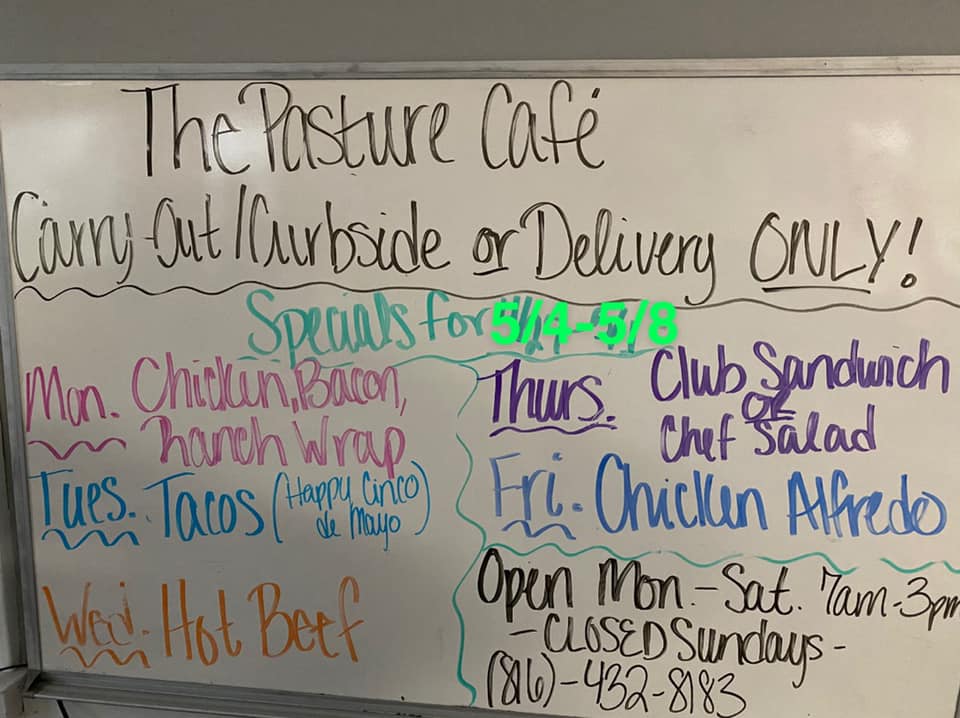 The Pasture Café
Carry-Out/Curbside or Delivery ONLY!
Specials for 5/4-5/8
Mon. Chicken, Bacon,
Ranch Wrap
Tues. Tacos (Happy Cinco
de Mayo)
Wed. Hot Beef
Thurs. Club Sandwich
or
Chef Salad
Fri. Chicken Alfredo
Open Mon.-Sat. 7am-3pm
-CLOSED Sundays-
(816)-432-8183